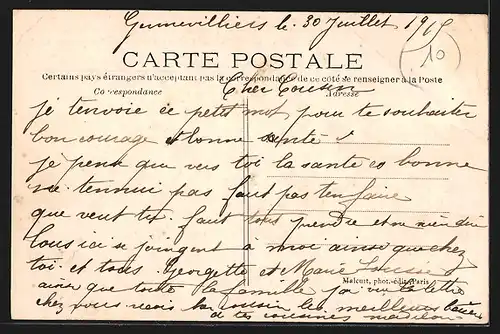 Gennevilliers le 30 Juillet 1915
10
CARTE POSTALE
Certains pays étrangers n'acceptant pas la correspondance de ce côté se renseigner à la Poste
Correspondance Adresse
Cher Cousin
je tenvoie ce petit mot pour te souhaiter
bon courage et bonne santé
je pense que vers toi la sante es bonne
ne tennui pas faut pas ten faire
que veut tu faut tous prendre et ne rien dire
Tous ici se joingent à moi ainsi que chez
toi et tous Georgette et Marie
Malcuit, phot.-édit. Paris
ainsi que toute la famille j'ai vu ta lettre
chez nous recois les meilleurs
de tes cousines